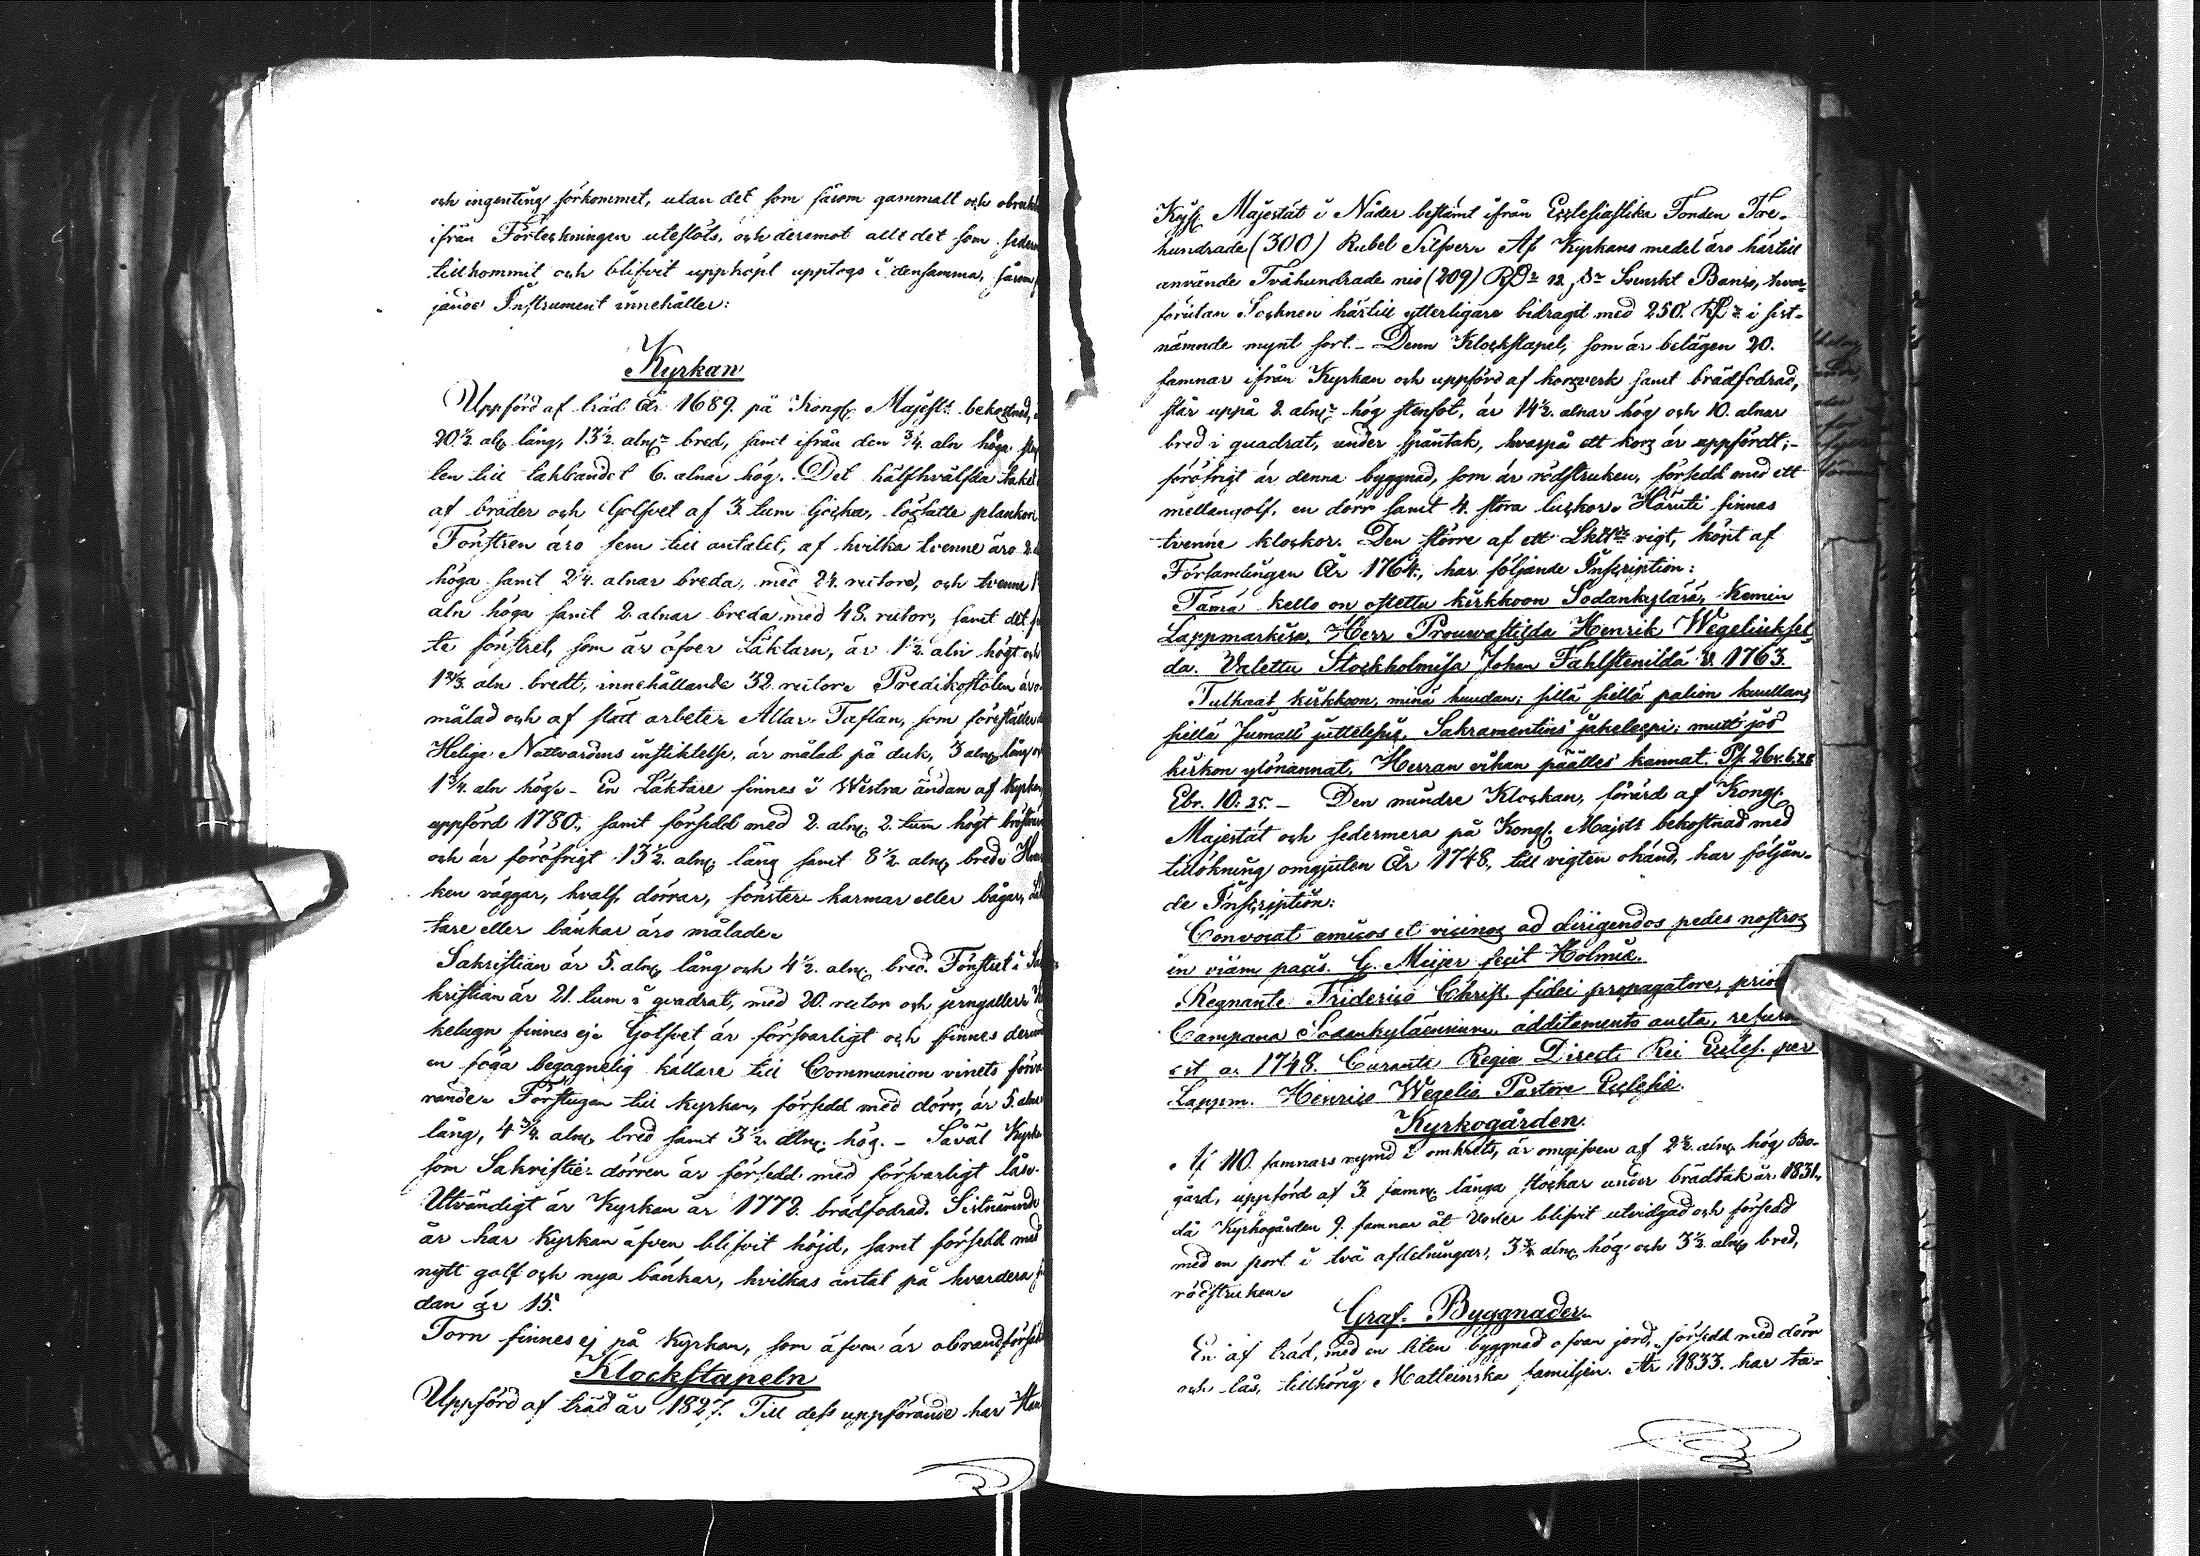 och ingenting förkommet, utan det som såsom gammalt och
ifrån Förteckningen uteslöts, och deremot allt det som
tillkommit och blifvit uppköpt upptogs i densamma, såsom
Instrument innehåller:
Kyrkan
Uppförd af träd År 1689. på Kongl. Majest:s bekostnad,
20½ al: lång, 13½ aln:r bred, samt ifrån den ¾ aln höga
len till takbandet 6. alnar hög. Det hälfthvälfda
af bräder och Golfvet af 3. tum tjocka, lössatte plankor
Fönstren äro fem till antalet, af hvilka tvenne äro
höga samt 2¼. alnar breda, med 24. rutor, och tvenne
aln höga samt 2. alnar breda med 48. rutor, samt det
te fönstret, som är öfver Läktarn, är 1½. aln högt och
1⅔. aln bredt, innehållande 32. rutor. Predikostolen
målad och af slätt arbete. Altar-Taflan, som föreställer
Heliga Nattvardens instiktelse, är målad på duk, 3 aln: lång
1¾. aln hög. - En Läktare finnes i Westra ändan af Kyrkan
uppförd 1780., samt försedd med 2. aln: 2. tum högt
och är föröfrigt 13½ aln: lång samt 8½ aln: bred.
ken väggar, hvalf, dörrar, fönster karmar eller bågar,
tare eller bänkar äro målade.
Sakristian är 5. aln: lång och 4½. aln: bred. Fönstret i
kristian är 21. tum i qvadrat, med 20. rutor och jerngaller.
kelugn finnes ej. Golfvet är försvarligt och finnes
en föga begagnelig källare till Communion vinets
rande. Förstugan till kyrkan, försedd med dörr, är 5. aln
lång, 4¾. aln: bred samt 3½. aln: hög. - Såväl Kyrk
som Sakristie-dörren är försedd med försvarligt lås.
Utvändigt är Kyrkan år 1772. brädfodrad. Sistnämnde
år har kyrkan äfven blifvit höjd, samt försedd med
nytt golf och nya bänkar, hvilkas antal på hvardera
dan är 15.
Torn finnes ej på kyrkan, som äfven är obrandförsäk
Klockstapeln
Uppförd af träd år 1827. Till dess uppförande har
Kejs. Majestät i Nåder bestämt ifrån Ecclesiastika Fonden Tre-
hundrade (300) Rubel Silfver. Af Kyrkans medel äro härtill
använde Tvåhundrade nio (209) RD:r 12 s:r Svenskt Banco, hvar-
förutan Socknen härtill ytterligare bidragit med 250. Rd:r i sist-
nämnde mynt sort. - Denn Klockstapel, som är belägen 20.
famnar ifrån Kyrkan och uppförd af korsverk samt brädfodrad,
står uppå 2. aln:r hög stenfot, är 14½. alnar hög och 10. alnar
bred i quadrat, under spåntak, hvarpå ett kors är uppfördt; -
föröfrigt är denna byggnad, som är rödstruken, försedd med ett
mellangolf, en dörr samt 4. stora luckor. Häruti finnas
tvenne klockor. Den större af ett vigt, köpt af
Församlingen År 1764., har följande Inscription:
Tämä kello on ostettu kirkkoon Sodankylässä, Kemin
Lappmarkisa, Herr Prouwastilda Henrik Wegeliuksel
da. Valettu Stockholmisa Johan Fahlstenildä V. 1763.
Tulkaat kirkkoon, minä huudan; sillä siellä palion kuullan;
siellä Jumall' juttelepi, Sakramentins' jakelepi; mutt' jos
kirkon ylönannat, Herran vihan päälles' kannat. Ps. 26. v. 6. 7. 8
Ebr. 10: 25. - Den mindre Klockan, förärd af Kongl.
Majestät och sedermera på Kongl. Majsts bekostnad med
tillökning omgjuten År 1748, till vigten okänd, har följan-
de Inscription:
Convocat amicos et vicinos ad dirigendos pedes nostros
in viam pacis. G. Meijer fecit Holmiæ.
Regnante Friderico Christ. fidei propagatore,
Campana Sodankyläensium, additamento aucta,
est a. 1748. Curante Regia Direct. Rei Eccles. per
Lappm. Henrico Wegelio Pastore Ecclesiæ.
Kyrkogården.
Af 110. famnars rymd i omkrets, är omgifven af 2½ aln: hög Bo-
gård, uppförd af 3. famn: långa stockar under brädtak år 1831.,
då Kyrkogården 9. famnar åt Öster blifvit utvidgad och försedd
med en port i två afdelningar, 3¾ aln: hög och 3½ aln: bred,
rödstruken.
Graf-Byggnader.
En af träd, med en liten byggnad ofvan jord, försedd med dörr
och lås, tillhörig Matleinska familjen. År 1833. har ta-